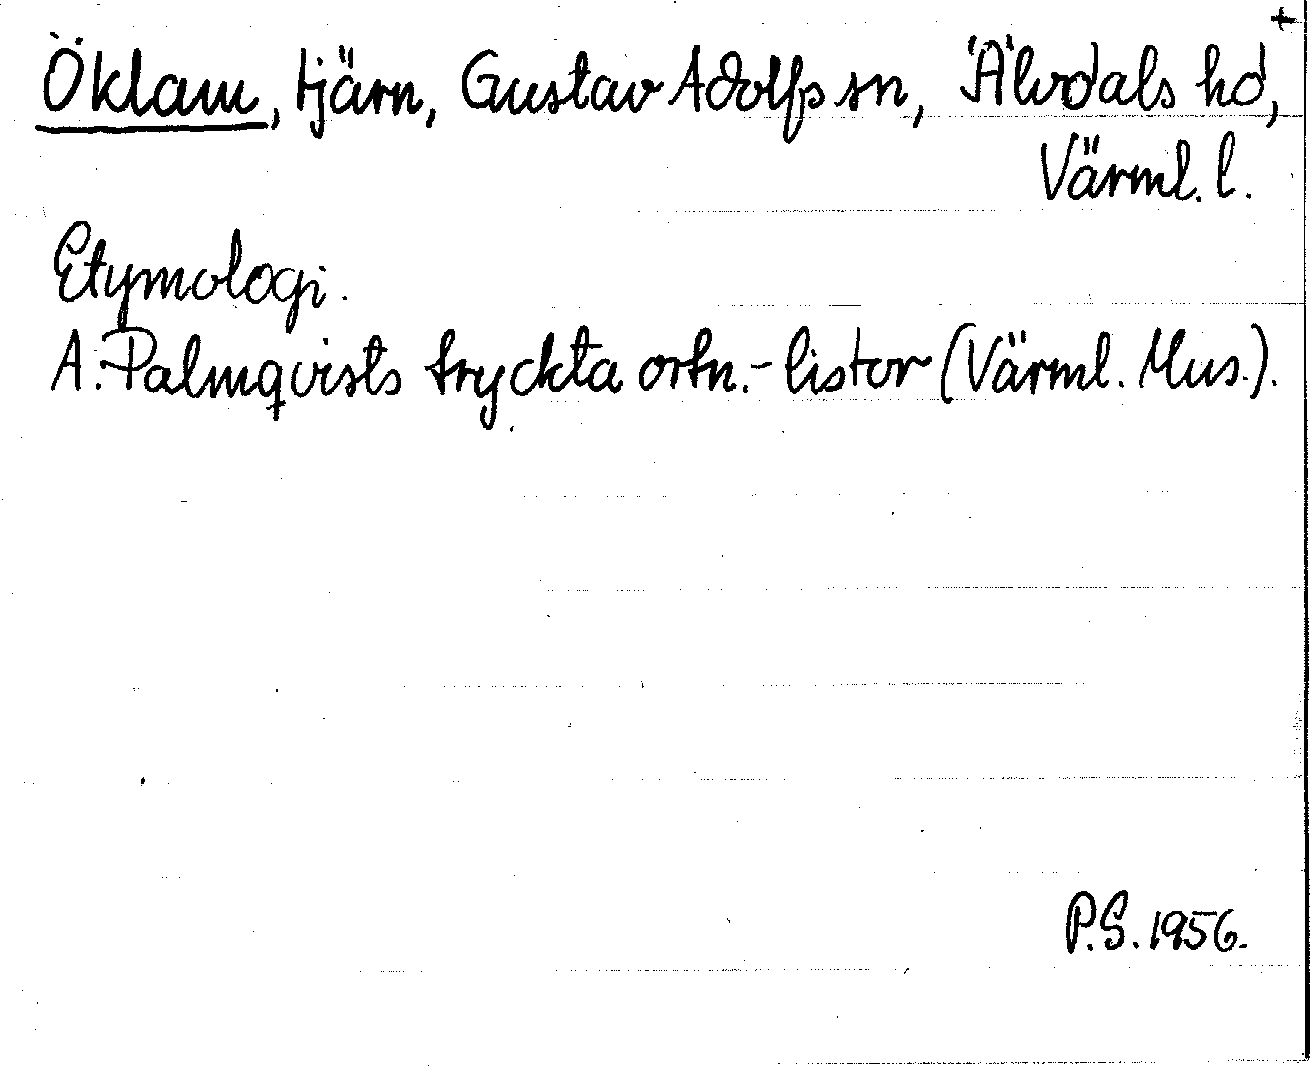 +
Öklam, tjärn, Gustav Adolfs sn, Älvdals hd,
Värml. l.
Etymologi.
A. Palmqvists tryckta ortn.-listor (Värml. Mus.).
P.S. 1956.